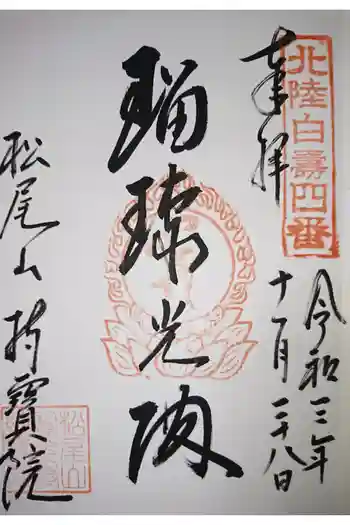 奉拝
北陸白寿四番
令和三年
十一月二十八日
瑠璃光殿
松尾山 持寳院
松尾山